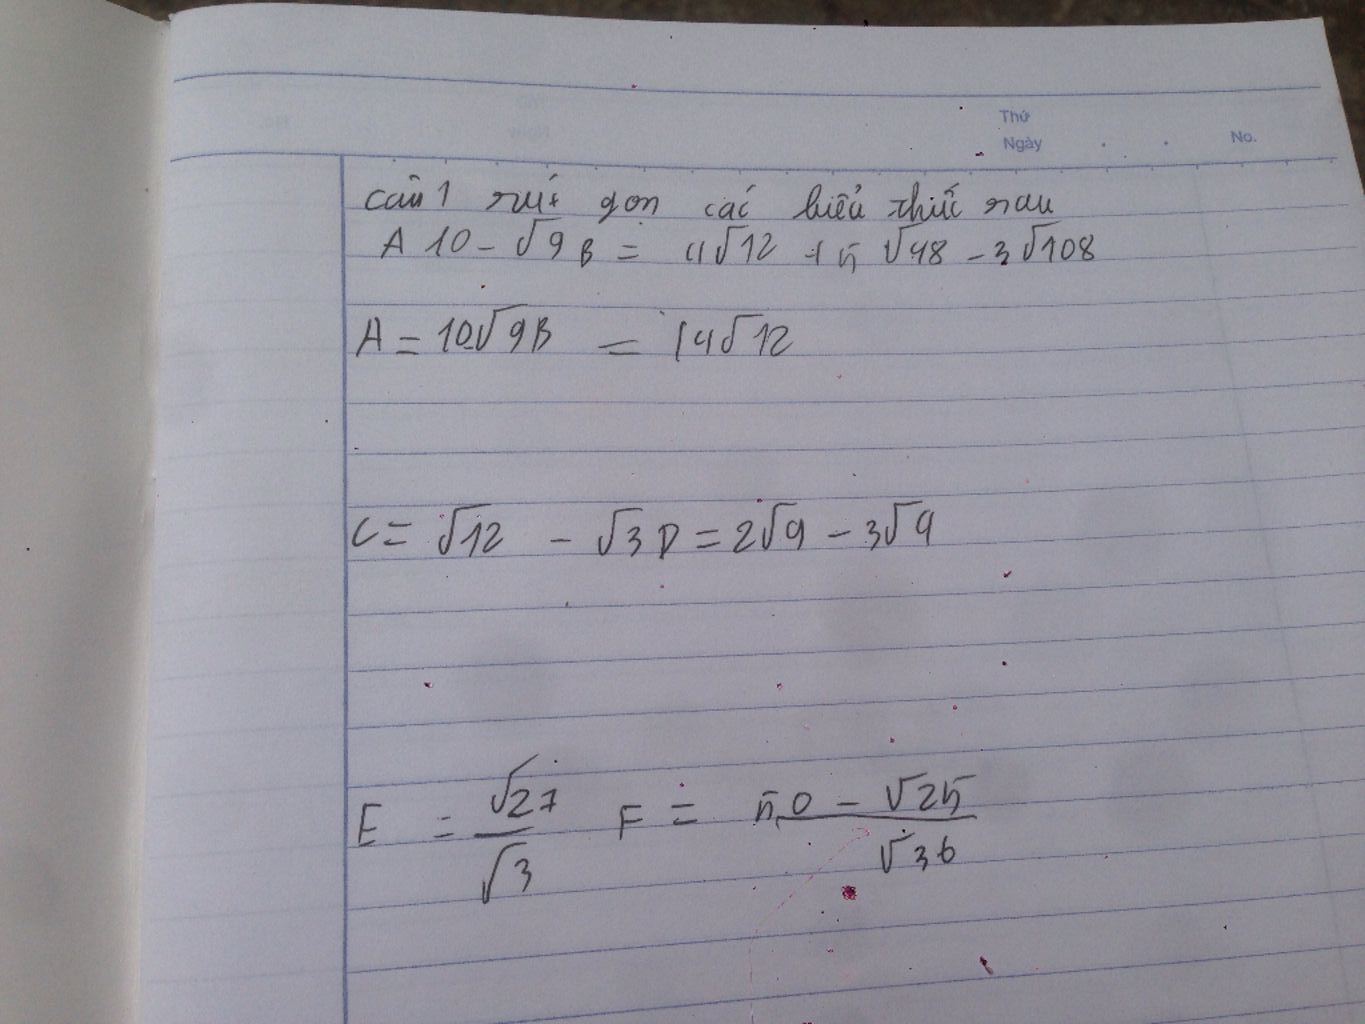 Thứ
Ngày . . No.
câu 1 rút gọn các biểu thức sau
A 10 - √9 B = 4√12 + 5 √48 - 3√108
A = 10√9B = 14√12
C = √12 - √3 D = 2√9 - 3√4
E = √27 / √3 F = 50 - √25 / √36